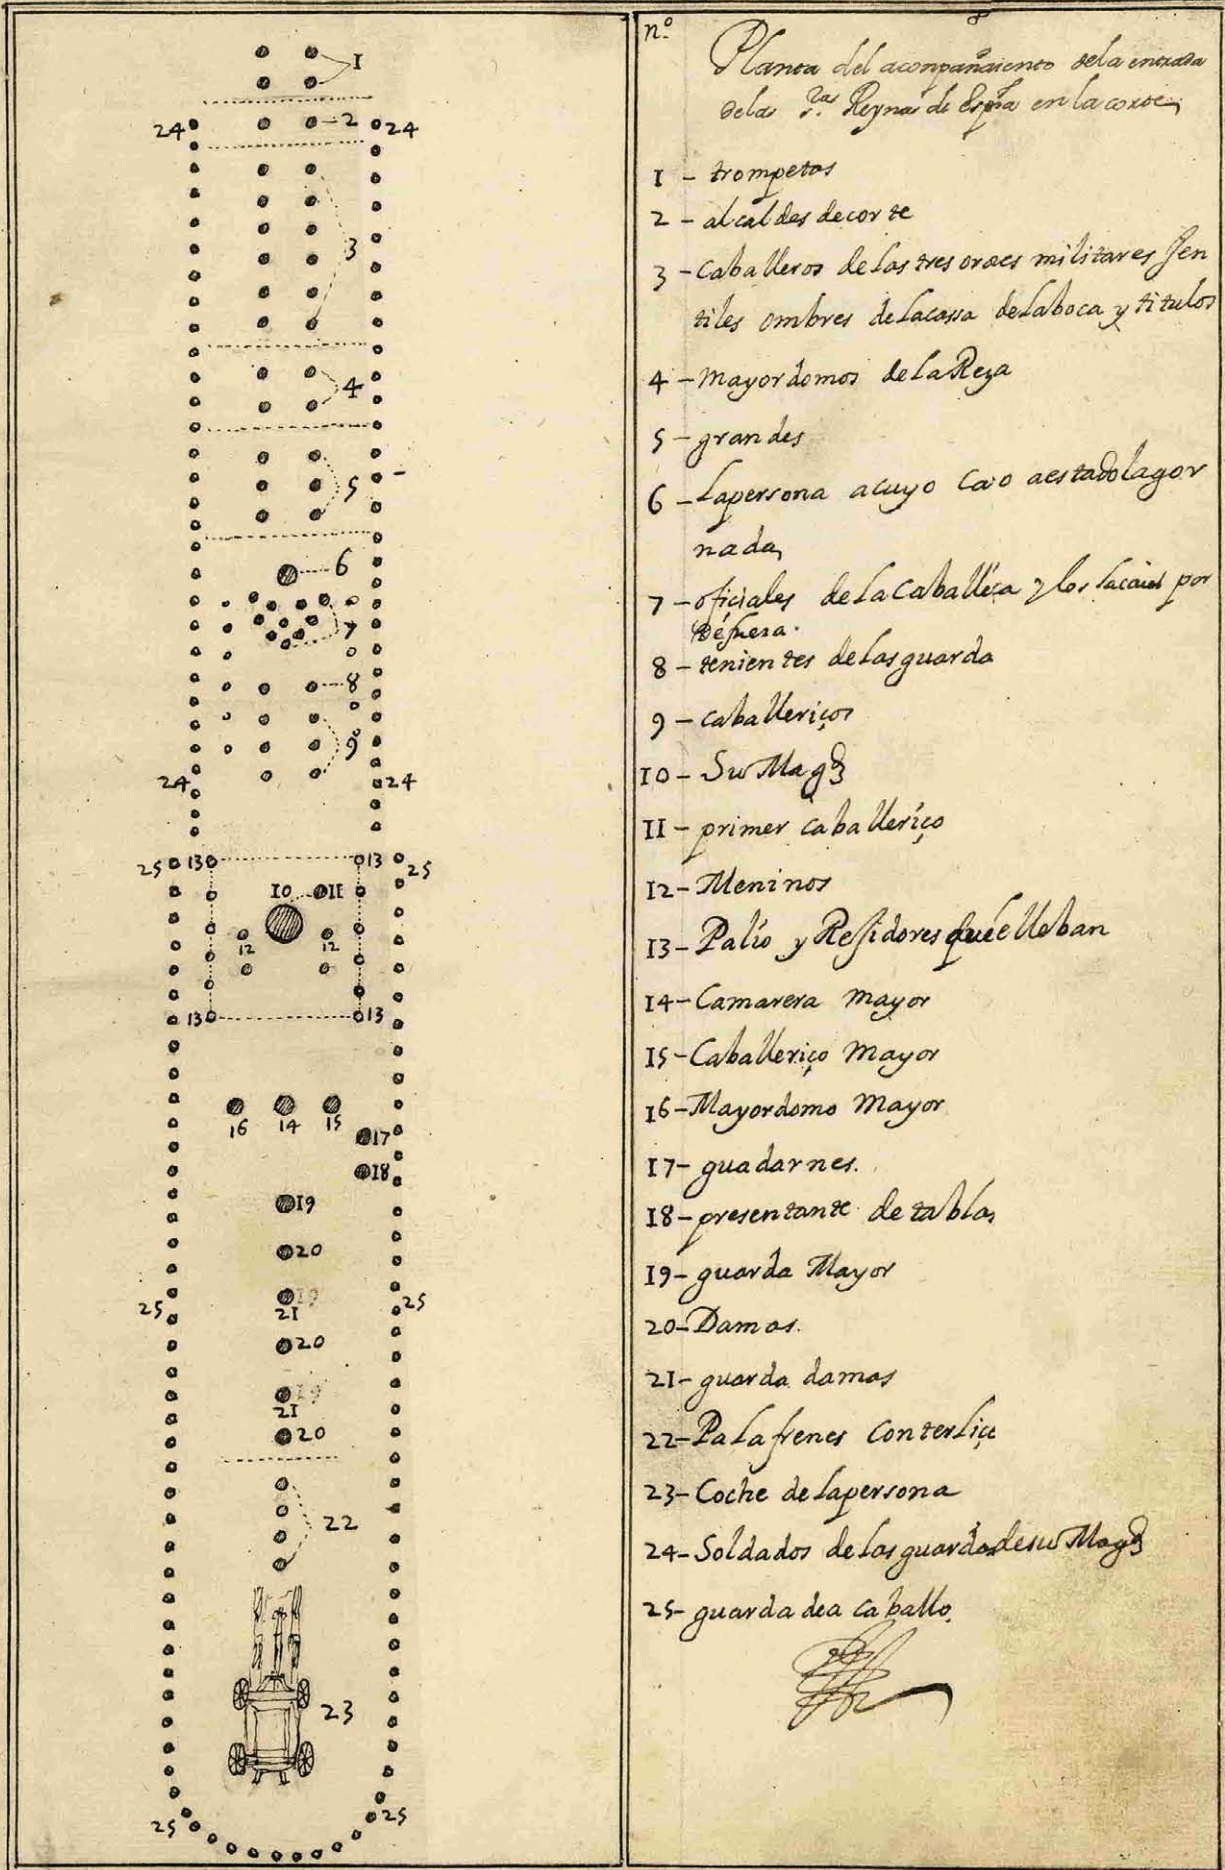 1
2
24
24
3
4
5
6
7
8
9
24
24
25
13
13
25
10
11
12
12
13
13
16
14
15
17
18
19
20
25
19
21
25
20
19
21
20
22
23
25
25
nº 8
Planta del acompañaiento dela entrada
delas s.ras Reynas de Espãa en la corte
1 - trompetas
2 - alcaldes decorte
3 - caballeros de las tres ordes militares Jen
tiles ombres de lacassa delaboca y titulos
4 - Mayordomos de la Reya
5 - grandes
6 - lapersona acuyo cao aestado lagor
nada
7 - oficiales de la caballiça y los lacaies por
défuera.
8 - tenientes de las guarda
9 - caballeriços
10 - Su Magd
11 - primer caballeriço
12 - Meninos
13 - Palio y Rejidores que le lleban
14 - Camarera mayor
15 - Caballeriço Mayor
16 - Mayordomo Mayor
17 - guadarnes.
18 - presentante de tablas
19 - guarda Mayor
20 - Damas.
21 - guarda damas
22 - Palafrenes con terliçe
23 - Coche de lapersona
24 - Soldados de las guardas desu Magd
25 - guarda dea caballo